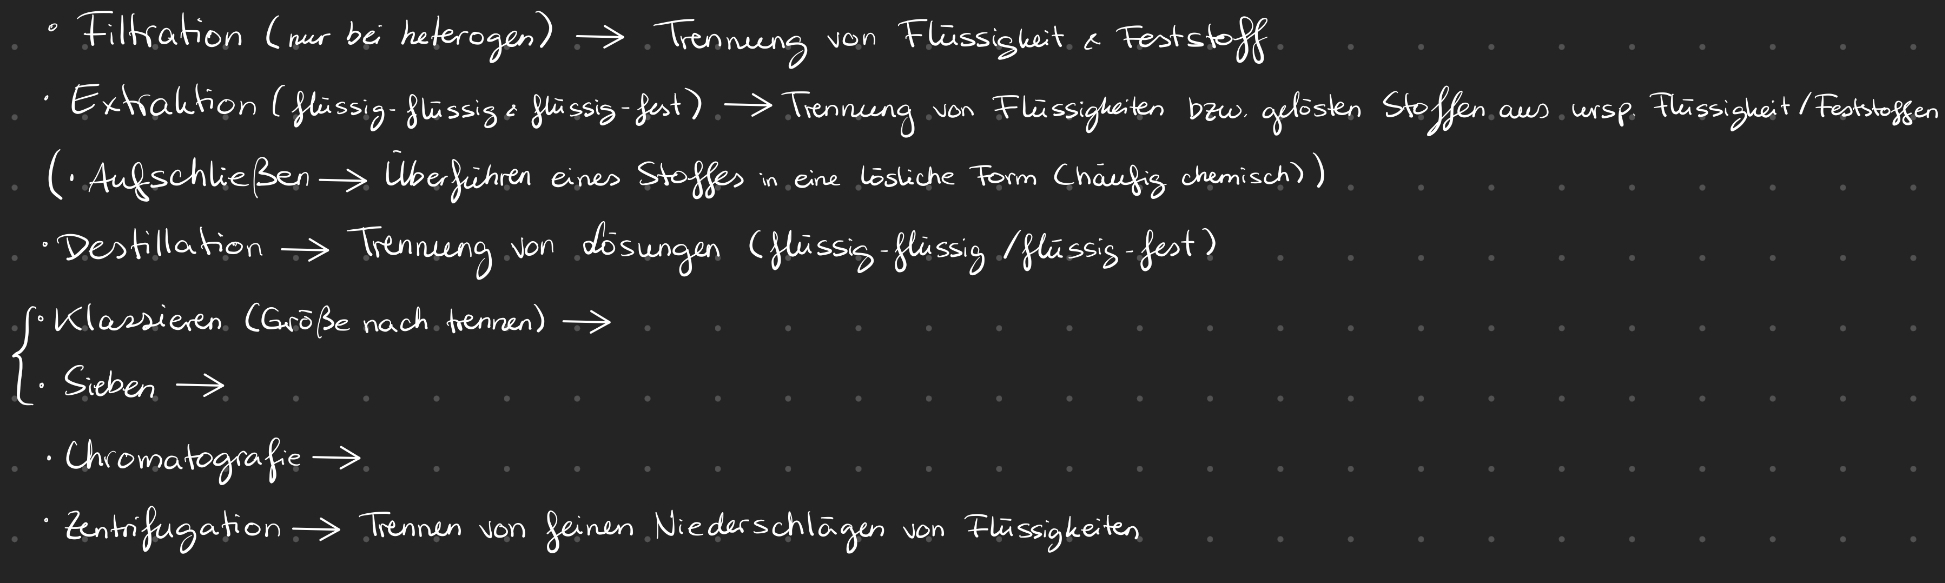 • Filtration (nur bei heterogen) → Trennung von Flüssigkeit & Feststoff
• Extraktion (flüssig-flüssig & flüssig-fest) → Trennung von Flüssigkeiten bzw. gelösten Stoffen aus ursp. Flüssigkeit/Feststoffen
(• Aufschließen → Überführen eines Stoffes in eine lösliche Form (häufig chemisch))
• Destillation → Trennung von Lösungen (flüssig-flüssig /flüssig-fest)
• Klassieren (Größe nach trennen) →
• Sieben →
• Chromatografie →
• Zentrifugation → Trennen von feinen Niederschlägen von Flüssigkeiten